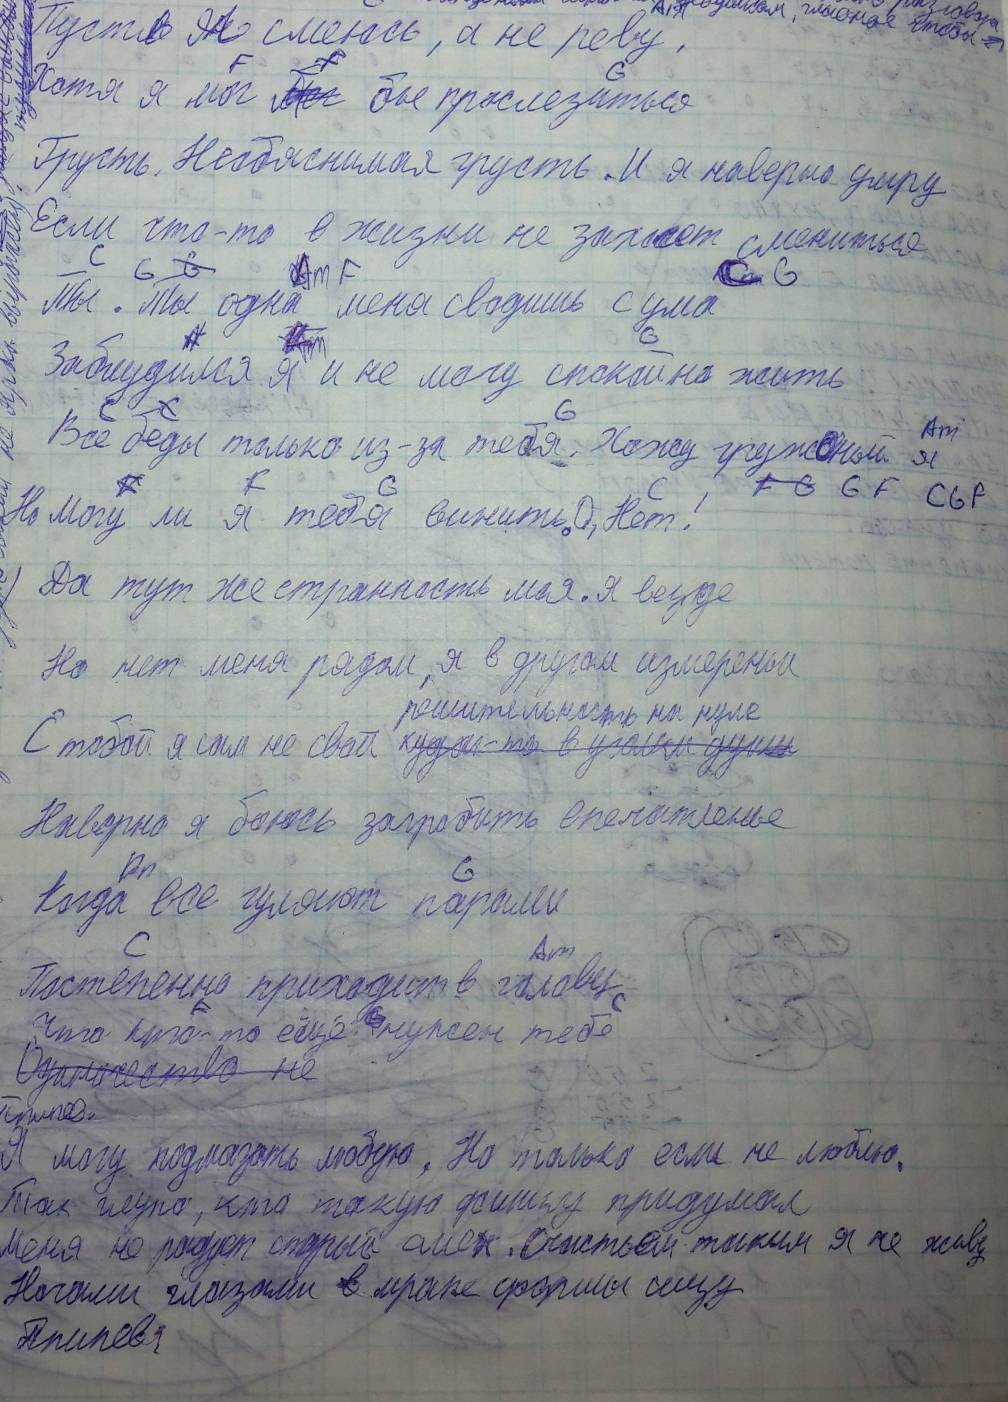 Пусть я смеюсь, а не реву,
F F G
Хотя я мог бы прослезиться
Грусть. Необьяснимая грусть. И я наверно умру
Если что-то в жизни не захочет смениться
C G G Am F G
Ты. Ты одна меня сводишь с ума
Am G
Заблудился я и не могу спокойно жить
C C G Am
Все беды только из-за тебя. Хожу гружоный я
F F G C F G G F C G F
Но могу ли я тебя винить. О, Нет!
Да тут же странность моя. Я везде
Но нет меня рядом, я в другом измереньи
решительность на нуле
С тобой я сам не свой куда-то в уголки души
Наверно я боюсь загробить впечатленье
Am G
Когда все гуляют парами
C Am
Постепенно приходит в голову
F G C
Что кто-то ещё нужен тебе
Одиночество не
Припев.
Я могу подмазать любую, Но только если не люблю.
Так глупо, кто такую фишку придумал
Меня не радует старый смех. Счастьем таким я не живу
Ногами глазами в мраке формы ищу
Припев: